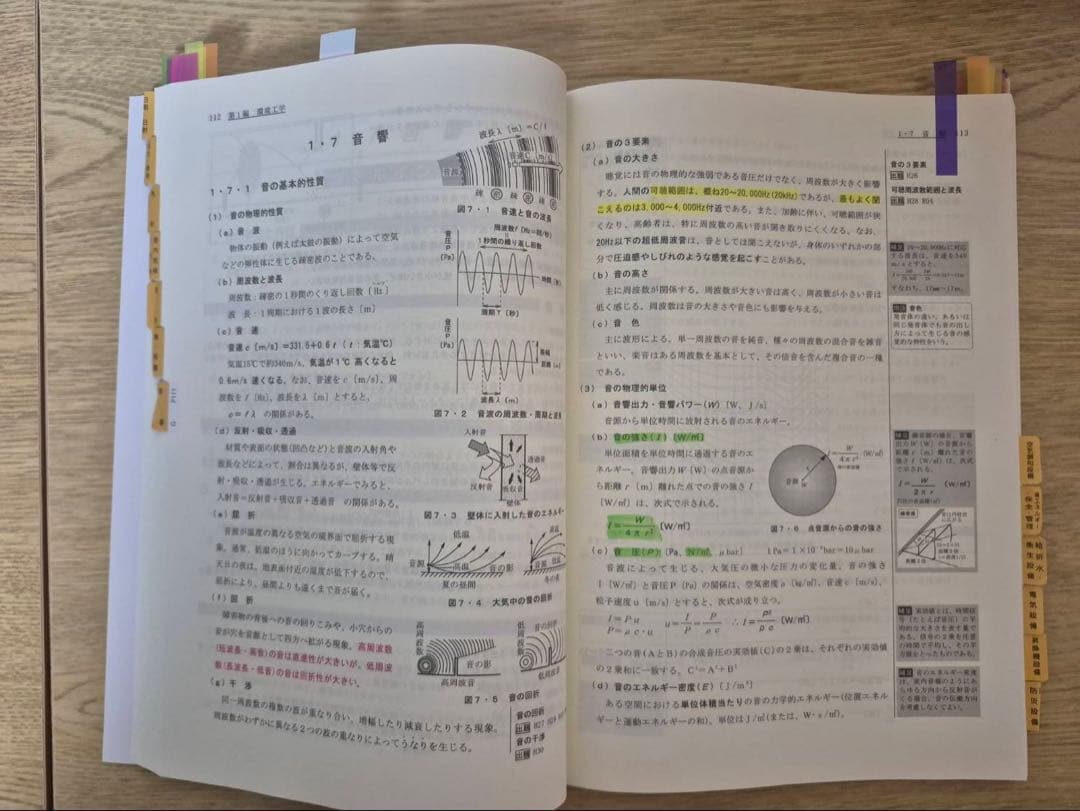 112 第1編 環境工学
1・7 音響
1・7・1 音の基本的性質
(1) 音の物理的性質
(a) 音波
物体の振動(例えば太鼓の振動)によって空気
などの弾性体に生じる疎密波のことである。
(b) 周波数と波長
周波数:疎密の1秒間のくり返し回数〔Hz〕
波長:1周期における1波の長さ〔m〕
(c) 音速
音速c〔m/s〕=331.5+0.6t(t:気温℃)
気温15℃で約340m/s、気温が1℃高くなると
0.6m/s速くなる。なお、音速をc〔m/s〕、周
波数をf〔Hz〕、波長をλ〔m〕とすると、
c=fλ の関係がある。
(d) 反射・吸収・透過
材質や表面の状態(凹凸など)と音波の入射角や
波長などによって、割合は異なるが、壁体等で反
射・吸収・透過が生じる。エネルギーでみると、
入射音=反射音+吸収音+透過音 の関係がある。
(e) 屈折
音波が温度の異なる空気の境界面で屈折する現
象。通常、低温のほうに向かってカーブする。晴
天日の夜は、地表面付近の温度が低下するので、
屈折により、昼間よりも遠くまで音が届く。
(f) 回折
障害物の背後への音の回りこみや、小穴からの
音が穴を音源として四方へ拡がる現象。高周波数
(短波長・高音)の音は直進性が大きいが、低周波
数(長波長・低音)の音は回折性が大きい。
(g) 干渉
同一周波数の複数の波が重なり合い、増幅したり減衰したりする現象。
周波数がわずかに異なる2つの波の重なりによってうなりを生じる。
波長λ〔m〕=C/f
音源
疎 密 疎 密
図7・1 音速と音の波長
周波数f〔Hz=回/秒〕
1秒間の繰り返し回数
音圧P
〔Pa〕
周期T〔秒〕
音圧P
〔Pa〕
振幅
距離〔m〕
波長λ〔m〕
図7・2 音波の周波数・周期と波長
入射音
透過音
反射音
吸収音
壁体
図7・3 壁体に入射した音のエネルギー
低温
音源
高温
音の影
夏の昼間
図7・4 大気中の音の屈折
高周波数
音の影
高周波音
低周波数
図7・5 音の回折
音の回折
出題 H27
音の干渉
出題 H30
1・7 音 113
(2) 音の3要素
(a) 音の大きさ
聴覚には音の物理的な強弱である音圧だけでなく、周波数が大きく影響
する。人間の可聴範囲は、概ね20~20,000Hz(20kHz)であるが、最もよく聞
こえるのは3,000~4,000Hz付近である。また、加齢に伴い、可聴範囲が狭
くなり、高齢者は、特に周波数の高い音が聞き取りにくくなる。なお、
20Hz以下の超低周波音は、音としては聞こえないが、身体のいずれかの部
分で圧迫感やしびれのような感覚を起こすことがある。
(b) 音の高さ
主に周波数が関係する。周波数が大きい音は高く、周波数が小さい音は
低く感じる。周波数は音の大きさや音色にも影響を与える。
(c) 音色
主に波形による。単一周波数の音を純音、種々の周波数の混合音を雑音
といい、楽音はある周波数を基本として、その倍音を含んだ複合音の一種
である。
(3) 音の物理的単位
(a) 音響出力・音響パワー(W)〔W、J/s〕
音源から単位時間に放射される音のエネルギー。
(b) 音の強さ(I)〔W/㎡〕
単位面積を単位時間に通過する音のエ
ネルギー。音響出力W〔W〕の点音源か
ら距離r〔m〕離れた点での音の強さI
〔W/㎡〕は、次式で示される。
I=W/4πr² 〔W/㎡〕
音源
W/4πr² 〔W/㎡〕
図7・6 点音源からの音の強さ
(c) 音圧(P)〔Pa、N/㎡、μbar〕 1Pa=1×10⁻⁵bar=10μbar
音波によって生じる、大気圧の微小な圧力の変化量。音の強さ
I〔W/㎡〕と音圧P〔Pa〕の関係は、空気密度ρ〔kg/㎥〕、音速c〔m/s〕、
粒子速度u〔m/s〕とすると、次式が成り立つ。
I=P・u
P=ρ・c・u u=I/P=P/ρc ∴I=P²/ρc 〔W/㎡〕
二つの音(AとB)の合成音圧の実効値(C)の2乗は、それぞれの実効値
の2乗和に一致する。C²=A²+B²
(d) 音のエネルギー密度(E)〔J/㎥〕
ある空間における単位体積当たりの音の力学的エネルギー(位置エネルギ
ーと運動エネルギーの和)。単位はJ/㎥(または、W・s/㎥)。
音の3要素
出題 H26
可聴周波数範囲と波長
出題 H28 R04
補足 20~20,000Hzに対応
する波長は、音速を340
m/sとすると、
すなわち、17mm~17m。
用語 音色
発音体の違い、あるいは
同じ発音体でも音の出し
方によって生じる音の感
覚的な特性をいう。
補足 線音源の場合、音響
出力W〔W〕の音源から
距離r〔m〕離れた音の
強さI〔W/㎡〕は、次式
で示される。
I=W/2πr 〔W/㎡〕
線音源
補足 実効値とは、時間信
号(たとえば音圧)の平
均的な大きさを表す量で
ある。信号の2乗を任意
の時間で平均し、その平
方根をとったものである。
補足 音のエネルギー密度
は、室内音場のようにあ
らゆる方向から反射音が
くる場合、音の伝搬方向
を考慮しなくてよい。
空気調和設備
省エネルギー
保全・管理
給排水
衛生設備
電気設備
昇降機設備
防災設備